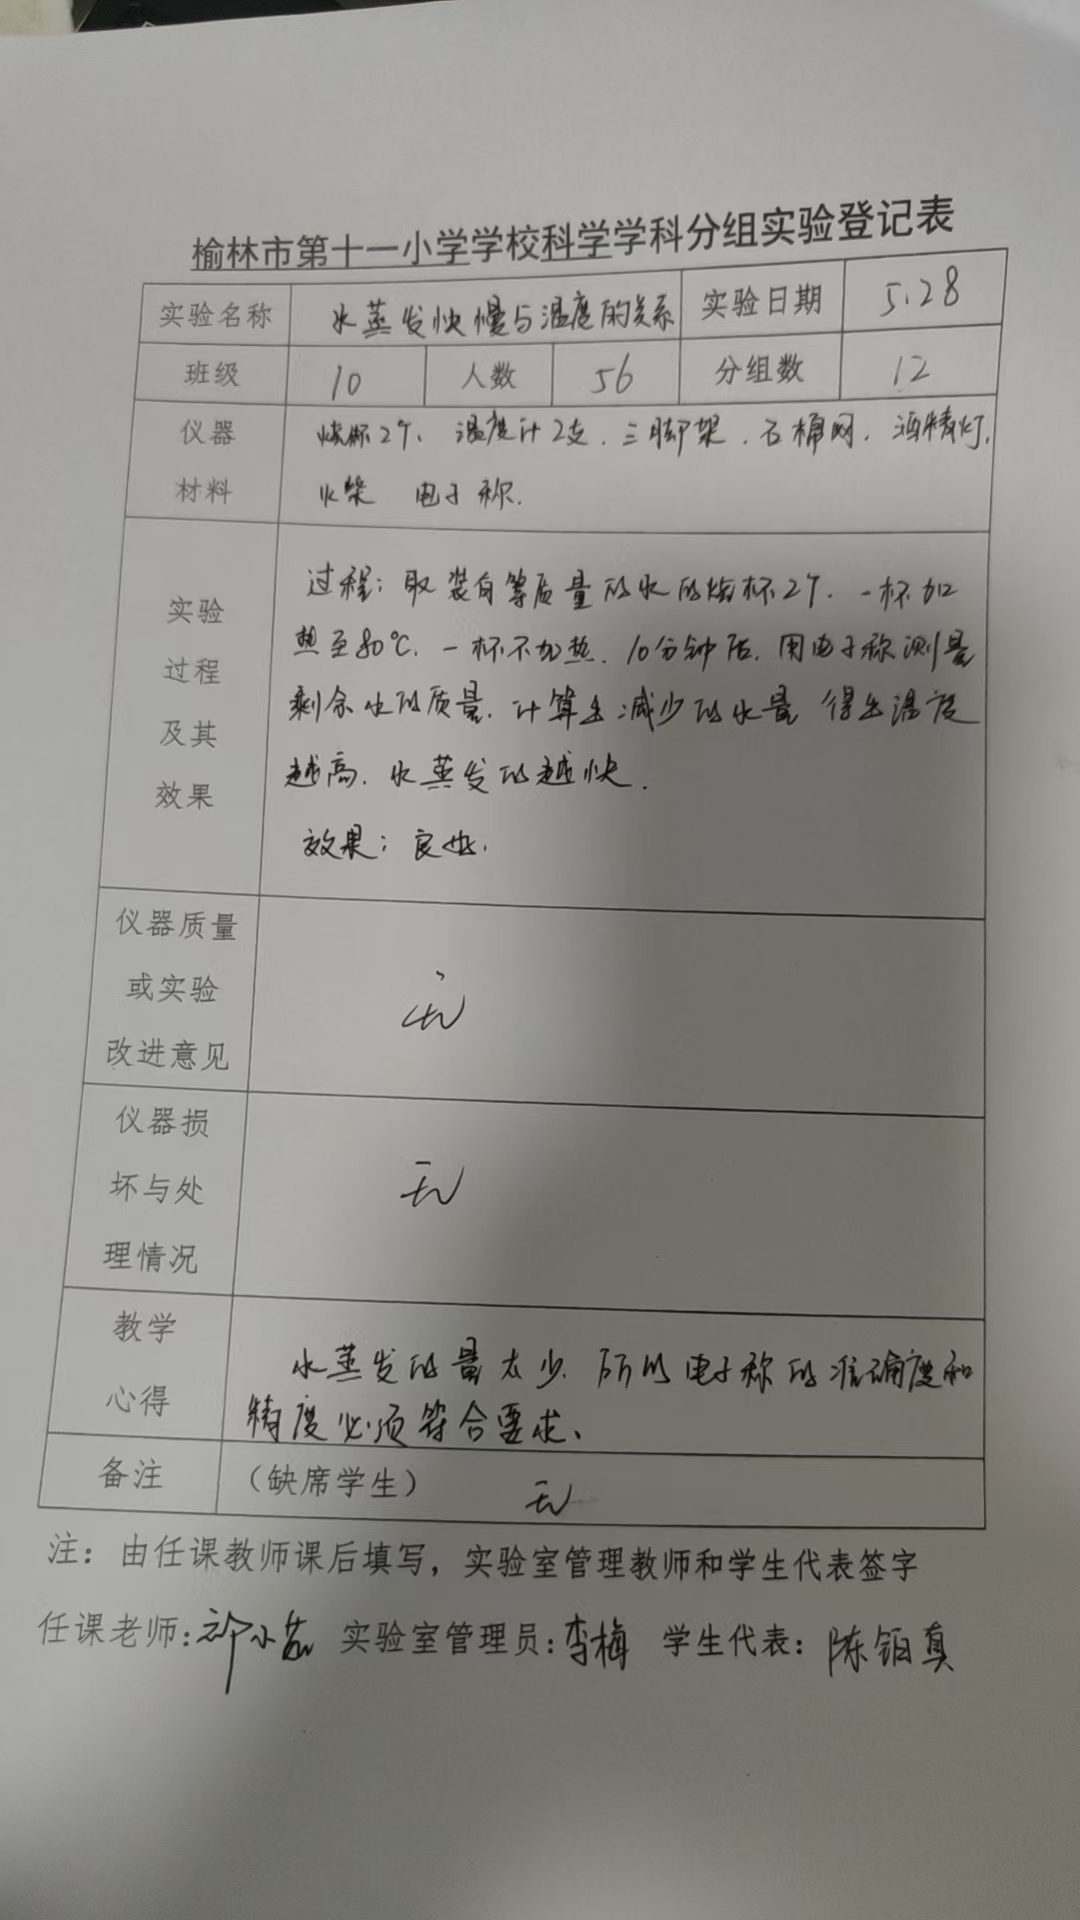 榆林市第十一小学学校科学学科分组实验登记表
实验名称 水蒸发快慢与温度的关系 实验日期 5.28
班级 10 人数 56 分组数 12
仪器材料 烧杯2个、温度计2支、三脚架、石棉网、酒精灯、
火柴 电子称.
实验过程及其效果
过程：取装有等质量的水的烧杯2个、一杯加
热至80℃、一杯不加热、10分钟后、用电子称测量
剩余水的质量、计算出减少的水量 得出温度
越高、水蒸发的越快.
效果：良好.
仪器质量或实验改进意见 无
仪器损坏与处理情况 无
教学心得 水蒸发的量太少、所以电子称的准确度和
精度必须符合要求、
备注 （缺席学生） 无
注：由任课教师课后填写，实验室管理教师和学生代表签字
任课老师: 小 实验室管理员: 李梅 学生代表: 陈铂真